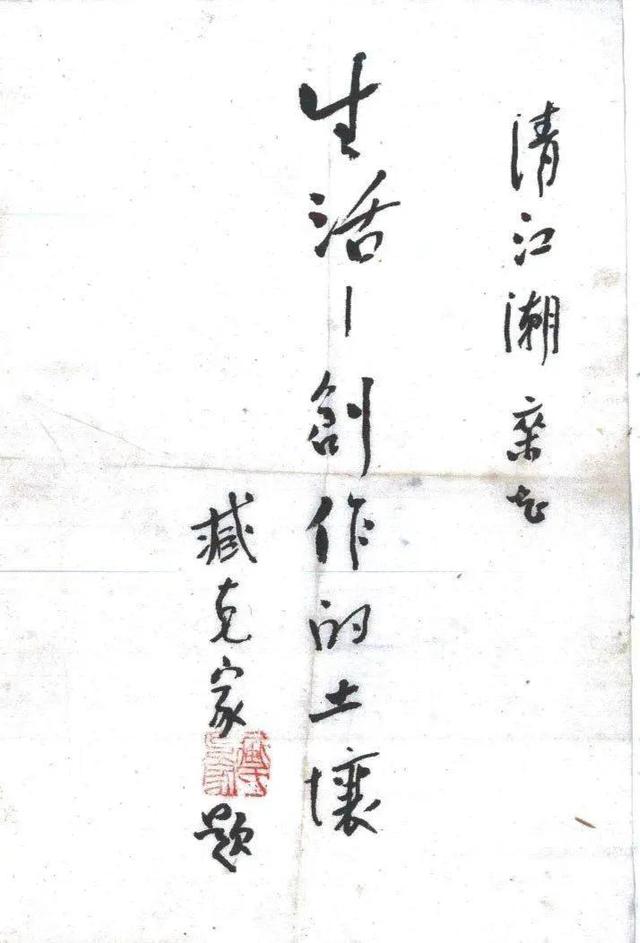 清江潮
生活—創作的土壤
臧克家題